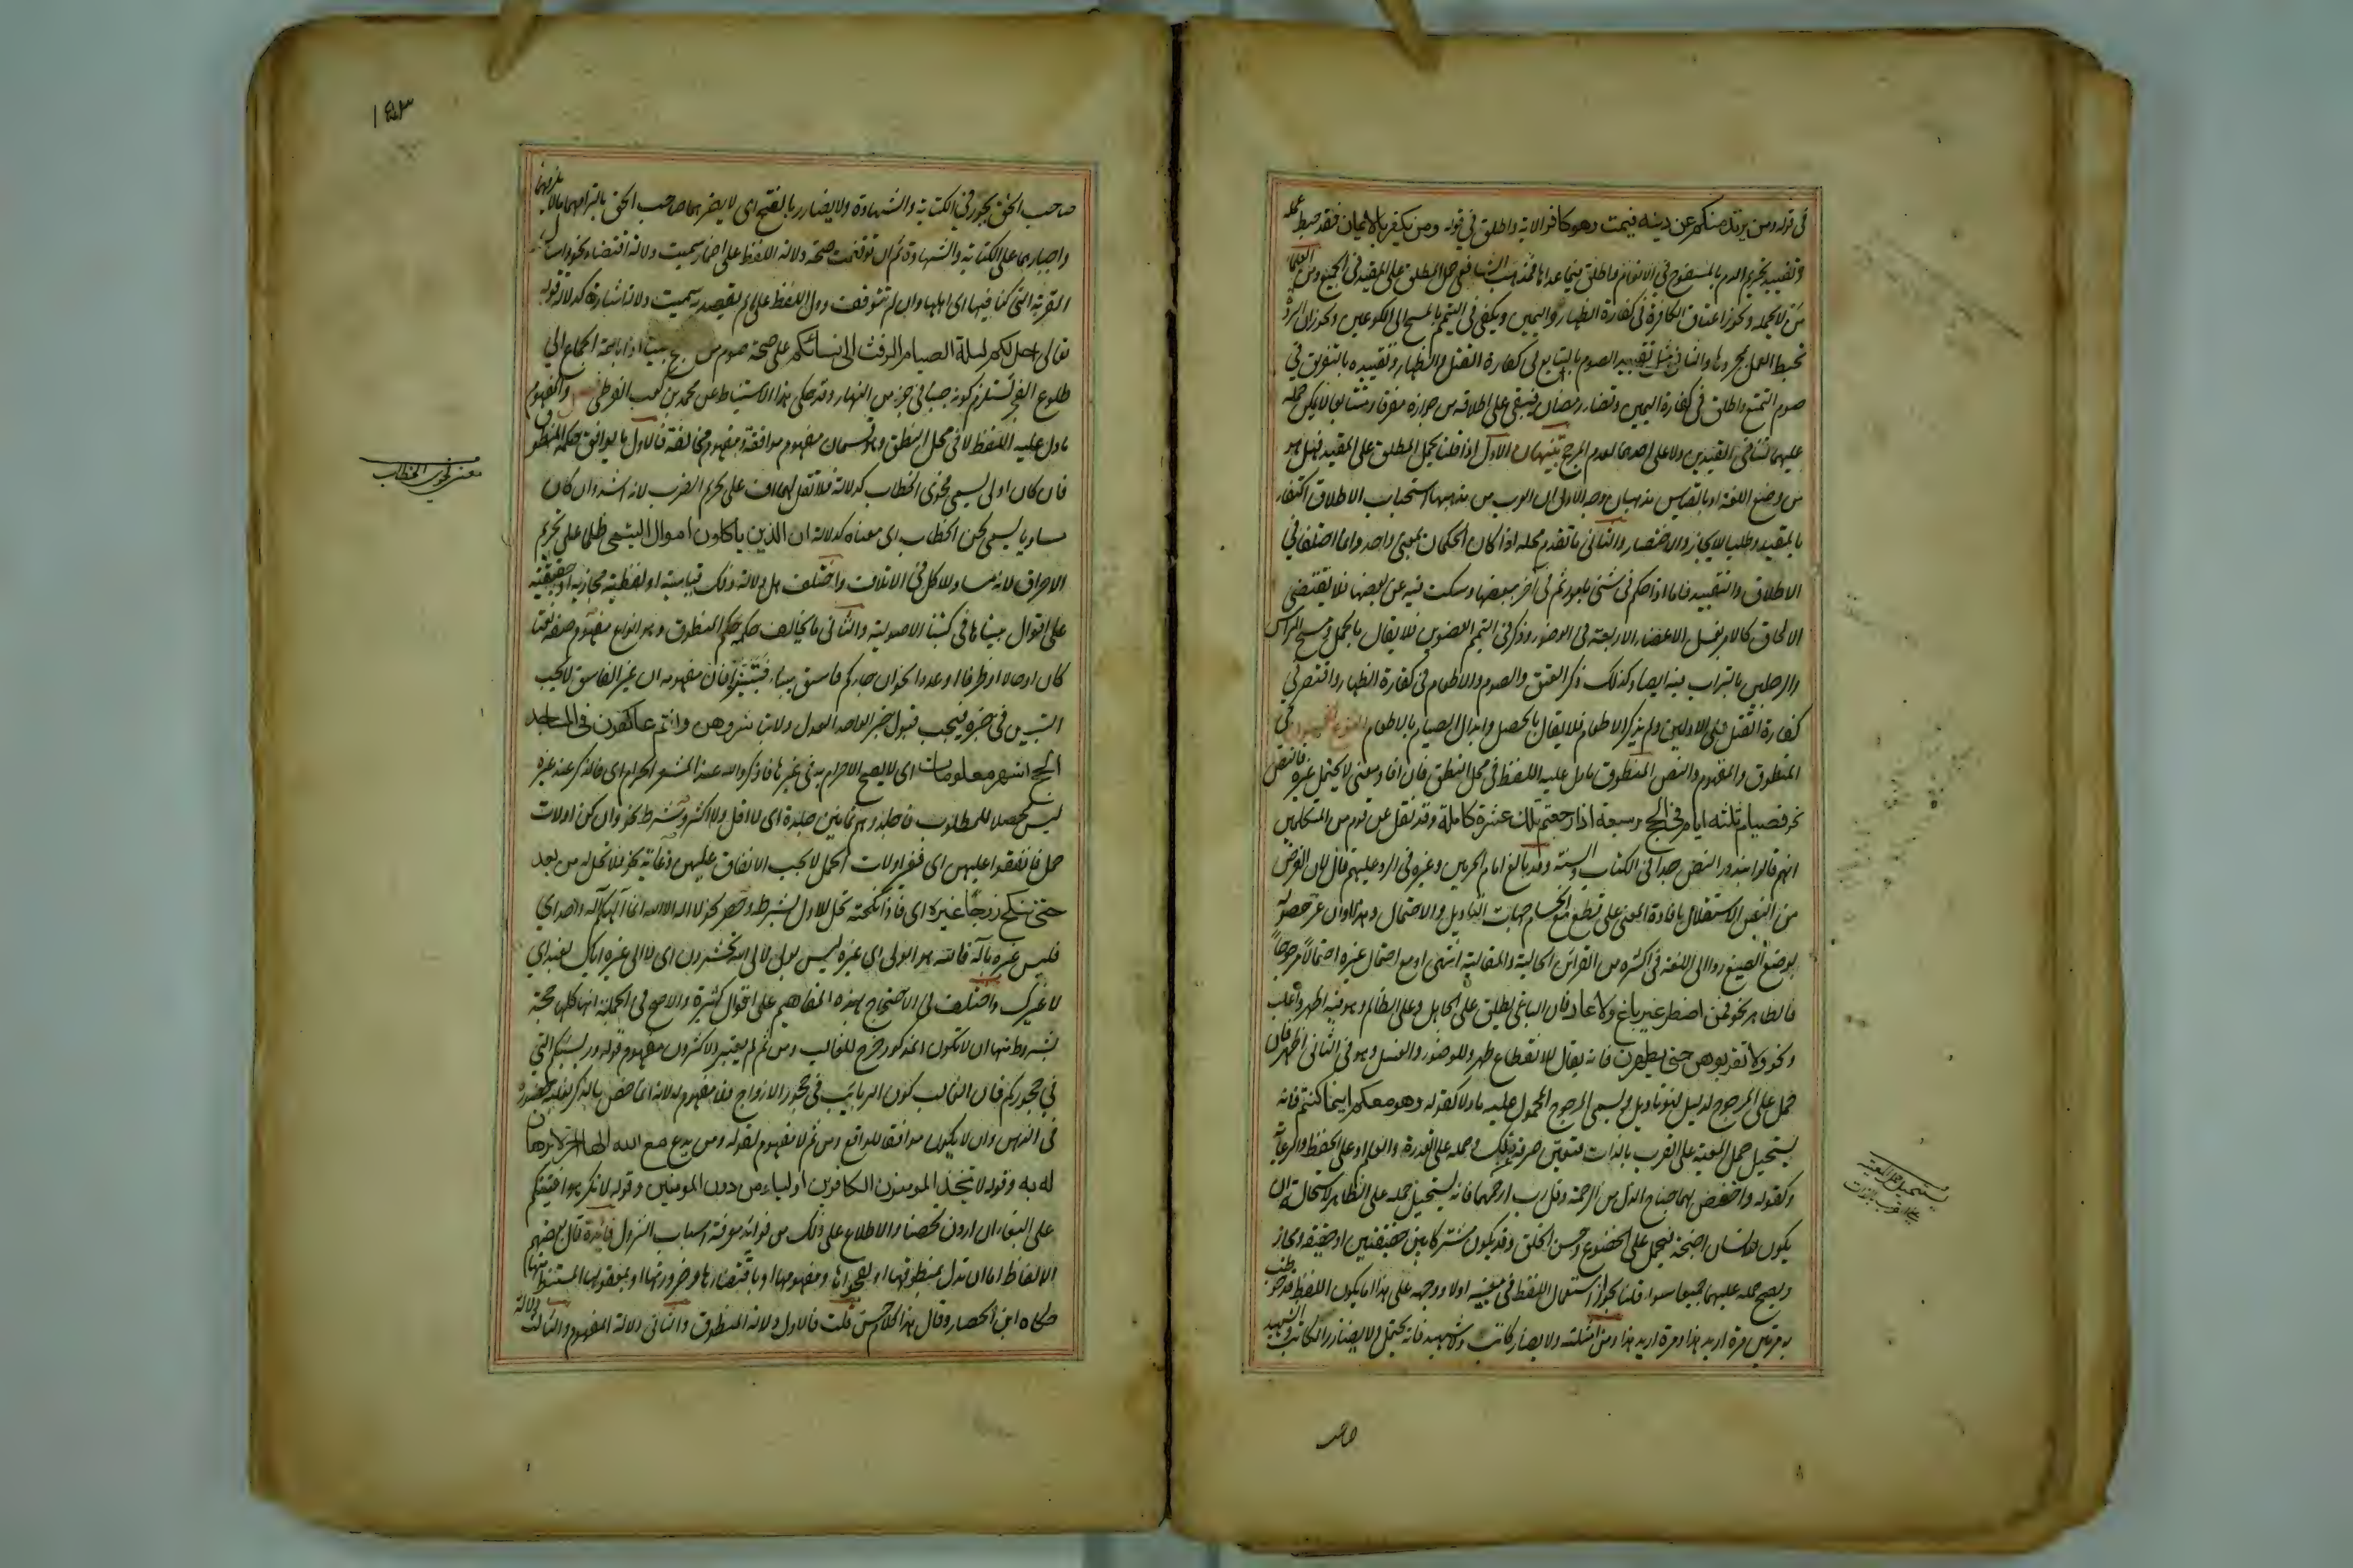 فى قوله ومن يرتدد منكم عن دينه فيمت وهو كافر الاية واطلق فى قوله ومن يكفر بالايمان فقد حبط عمله
وتقييد تحريم الدم بالمسفوح فى الانعام واطلق فيما عداها فمذهب الشافعى حمل المطلق على المقيد فى الجميع ومن العلماء
من لا يحمله ويجوز اعتاق الكافرة فى كفارة الظهار واليمين ويكتفى فى التيمم بالمسح الى الكوعين ويجوز ان الردة
تحبط العمل بمجردها والثانى مثل تقييد الصوم بالتتابع فى كفارة القتل والظهار وتقييده بالتفريق فى
صوم التمتع واطلق فى كفارة اليمين وقضاء رمضان فيبقى على اطلاقه من جوازه مفرقا ومتتابعا لا يمكن حمله
عليهما لتنافى القيدين ولا على احدهما لعدم المرجح تنبيهان الاول اذا قلنا يحمل المطلق على المقيد فهل هو
من وضع اللغة او بالقياس مذهبان وجه الاول ان العرب من مذهبها استحباب الاطلاق اكتفاء
بالمقيد وطلبا للايجاز والاختصار والثانى ما تقدم محله اذا كان الحكمان بمعنى واحد وانما اختلفا فى
الاطلاق والتقييد فاما اذا حكم فى شئ بامور ثم فى آخر ببعضها وسكت فيه عن بعضها فلا يقتضى
الالحاق كالامر بغسل الاعضاء الاربعة فى الوضوء وذكر فى التيمم العضوين فلا يقال بالحمل ومسح الراس
والرجلين بالتراب فيه ايضا وكذلك ذكر العتق والصوم والاطعام فى كفارة الظهار واقتصر فى
كفارة القتل على الاولين ولم يذكر الاطعام فلا يقال بالحمل وابدال الصيام بالاطعام النوع الخمسون فى
المنطوق والمفهوم والنص المنطوق ما دل عليه اللفظ فى محل النطق فان افاد معنى لا يحتمل غيره فالنص
نحو فصيام ثلثة ايام فى الحج وسبعة اذا رجعتم تلك عشرة كاملة وقد نقل عن قوم من المتكلمين
انهم قالوا بندور النص جدا فى الكتاب والسنة وقد بالغ امام الحرمين وغيره فى الرد عليهم قال لان الغرض
من النص الاستقلال بافادة المعنى على قطع مع انحسام جهات التاويل والاحتمال وهذا وان عز حصوله
بوضع الصيغ ردا الى اللغة فما اكثره من القرائن الحالية والمقالية انتهى او مع احتمال غيره احتمالا مرجوحا
فالظاهر نحو فمن اضطر غير باغ ولا عاد فان الباغى يطلق على الجاهل وعلى الظالم وهو فيه اظهر واغلب
ونحو ولا تقربوهن حتى يطهرن فانه يقال للانقطاع طهر وللوضوء والغسل وهو فى الثانى اظهر فان
حمل على المرجوح لدليل فهو تاويل ويسمى المرجوح المحمول عليه ماولا كقوله وهو معكم اينما كنتم فانه
يستحيل حمل المعية على القرب بالذات فتعين صرفه عن ذلك وحمله على القدرة والعلم او على الحفظ والرعاية
وكقوله واخفض لهما جناح الذل من الرحمة وقل رب ارحمهما فانه يستحيل حمله على الظاهر لاستحالة ان
يكون للانسان اجنحة فيحمل على الخضوع وحسن الخلق وقد يكون مشتركا بين حقيقتين او حقيقة ومجاز
ويصح حمله عليهما جميعا سواء قلنا بجواز استعمال اللفظ فى معنييه اولا ووجهه على هذا ان يكون اللفظ قد خوطب
به مرتين مرة اريد هذا ومرة اريد هذا ومن امثلته ولا يضار كاتب ولا شهيد فانه يحتمل ولا يضارر الكاتب والشهيد
يستحيل حمل المعية
على القرب بالذات
صاحب
١٤٣
صاحب الحق بجور فى الكتابة والشهادة ولا يضارر بالفتح اى لا يضرهما صاحب الحق بالزامهما ما لا يلزمهما
واجبارهما على الكتابة والشهادة ثم ان توقفت صحة دلالة اللفظ على اضمار سميت دلالة اقتضاء نحو واسأل
القرية التى كنا فيها اى اهلها وان لم تتوقف ودل اللفظ على ما لم يقصد به سميت دلالة اشارة كدلالة قوله
تعالى احل لكم ليلة الصيام الرفث الى نسائكم على صحة صوم من اصبح جنبا اذ اباحة الجماع الى
طلوع الفجر تستلزم كونه جنبا فى جزء من النهار وقد حكى هذا الاستنباط عن محمد بن كعب القرظى فصل والمفهوم
ما دل عليه اللفظ لا فى محل النطق وهو قسمان مفهوم موافقة ومفهوم مخالفة فالاول ما يوافق حكمه المنطوق
فان كان اولى يسمى فحوى الخطاب كدلالة فلا تقل لهما اف على تحريم الضرب لانه اشد وان كان
مساويا يسمى لحن الخطاب اى معناه كدلالة ان الذين ياكلون اموال اليتمى ظلما على تحريم
الاحراق لانه مساو للاكل فى الاتلاف واختلف هل دلالة ذلك قياسية او لفظية مجازية او حقيقية
على اقوال بيناها فى كتبنا الاصولية والثانى ما يخالف حكمه حكم المنطوق وهو انواع مفهوم صفة نعتا
كان او حالا او ظرفا او عددا نحو ان جاءكم فاسق بنبا فتبينوا فان مفهومه ان غير الفاسق لا يجب
التبين فى خبره فيجب قبول خبر الواحد العدل ولا تباشروهن وانتم عاكفون فى المساجد
الحج اشهر معلومات اى لا يصح الاحرام به فى غيرها فاذكروا الله عند المشعر الحرام اى فالذكر عند غيره
ليس محصلا للمطلوب فاجلدوهم ثمانين جلدة اى لا اقل ولا اكثر وشرط نحو وان كن اولات
حمل فانفقوا عليهن اى فغير اولات الحمل لا يجب الانفاق عليهن وغاية نحو فلا تحل له من بعد
حتى تنكح زوجا غيره اى فاذا نكحته تحل للاول بشرطه وحصر نحو لا اله الا الله انما الهكم اله واحد اى
فليس غيره باله فالله هو الولى اى غيره ليس بولى لالى الله تحشرون اى لا الى غيره اياك نعبد اى
لا غيرك واختلف فى الاحتجاج بهذه المفاهيم على اقوال كثيرة والاصح فى الجملة انها كلها حجة
بشروط منها ان لا يكون المذكور خرج للغالب ومن ثم لم يعتبر الاكثرون مفهوم قوله وربائبكم التى
فى حجوركم فان الغالب كون الربائب فى حجور الازواج فلا مفهوم له لانه انما خص بالذكر لغلبة حضوره
فى الذهن وان لا يكون موافقا للواقع ومن ثم لا مفهوم لقوله ومن يدع مع الله الها اخر لا برهان
له به وقوله لا يتخذ المومنون الكافرين اولياء من دون المومنين وقوله لا تكرهوا فتيتكم
على البغاء ان اردن تحصنا والاطلاع على ذلك من فوائد معرفة اسباب النزول فائدة قال بعضهم
الالفاظ اما ان تدل بمنطوقها او بفحواها ومفهومها او باقتضائها وضرورتها او بمعقولها المستنبط منها
حكاه ابن الحصار وقال هذا كلام حسن قلت فالاول دلالة المنطوق والثانى دلالة المفهوم والثالث دلالة
معنى فحوى الخطاب